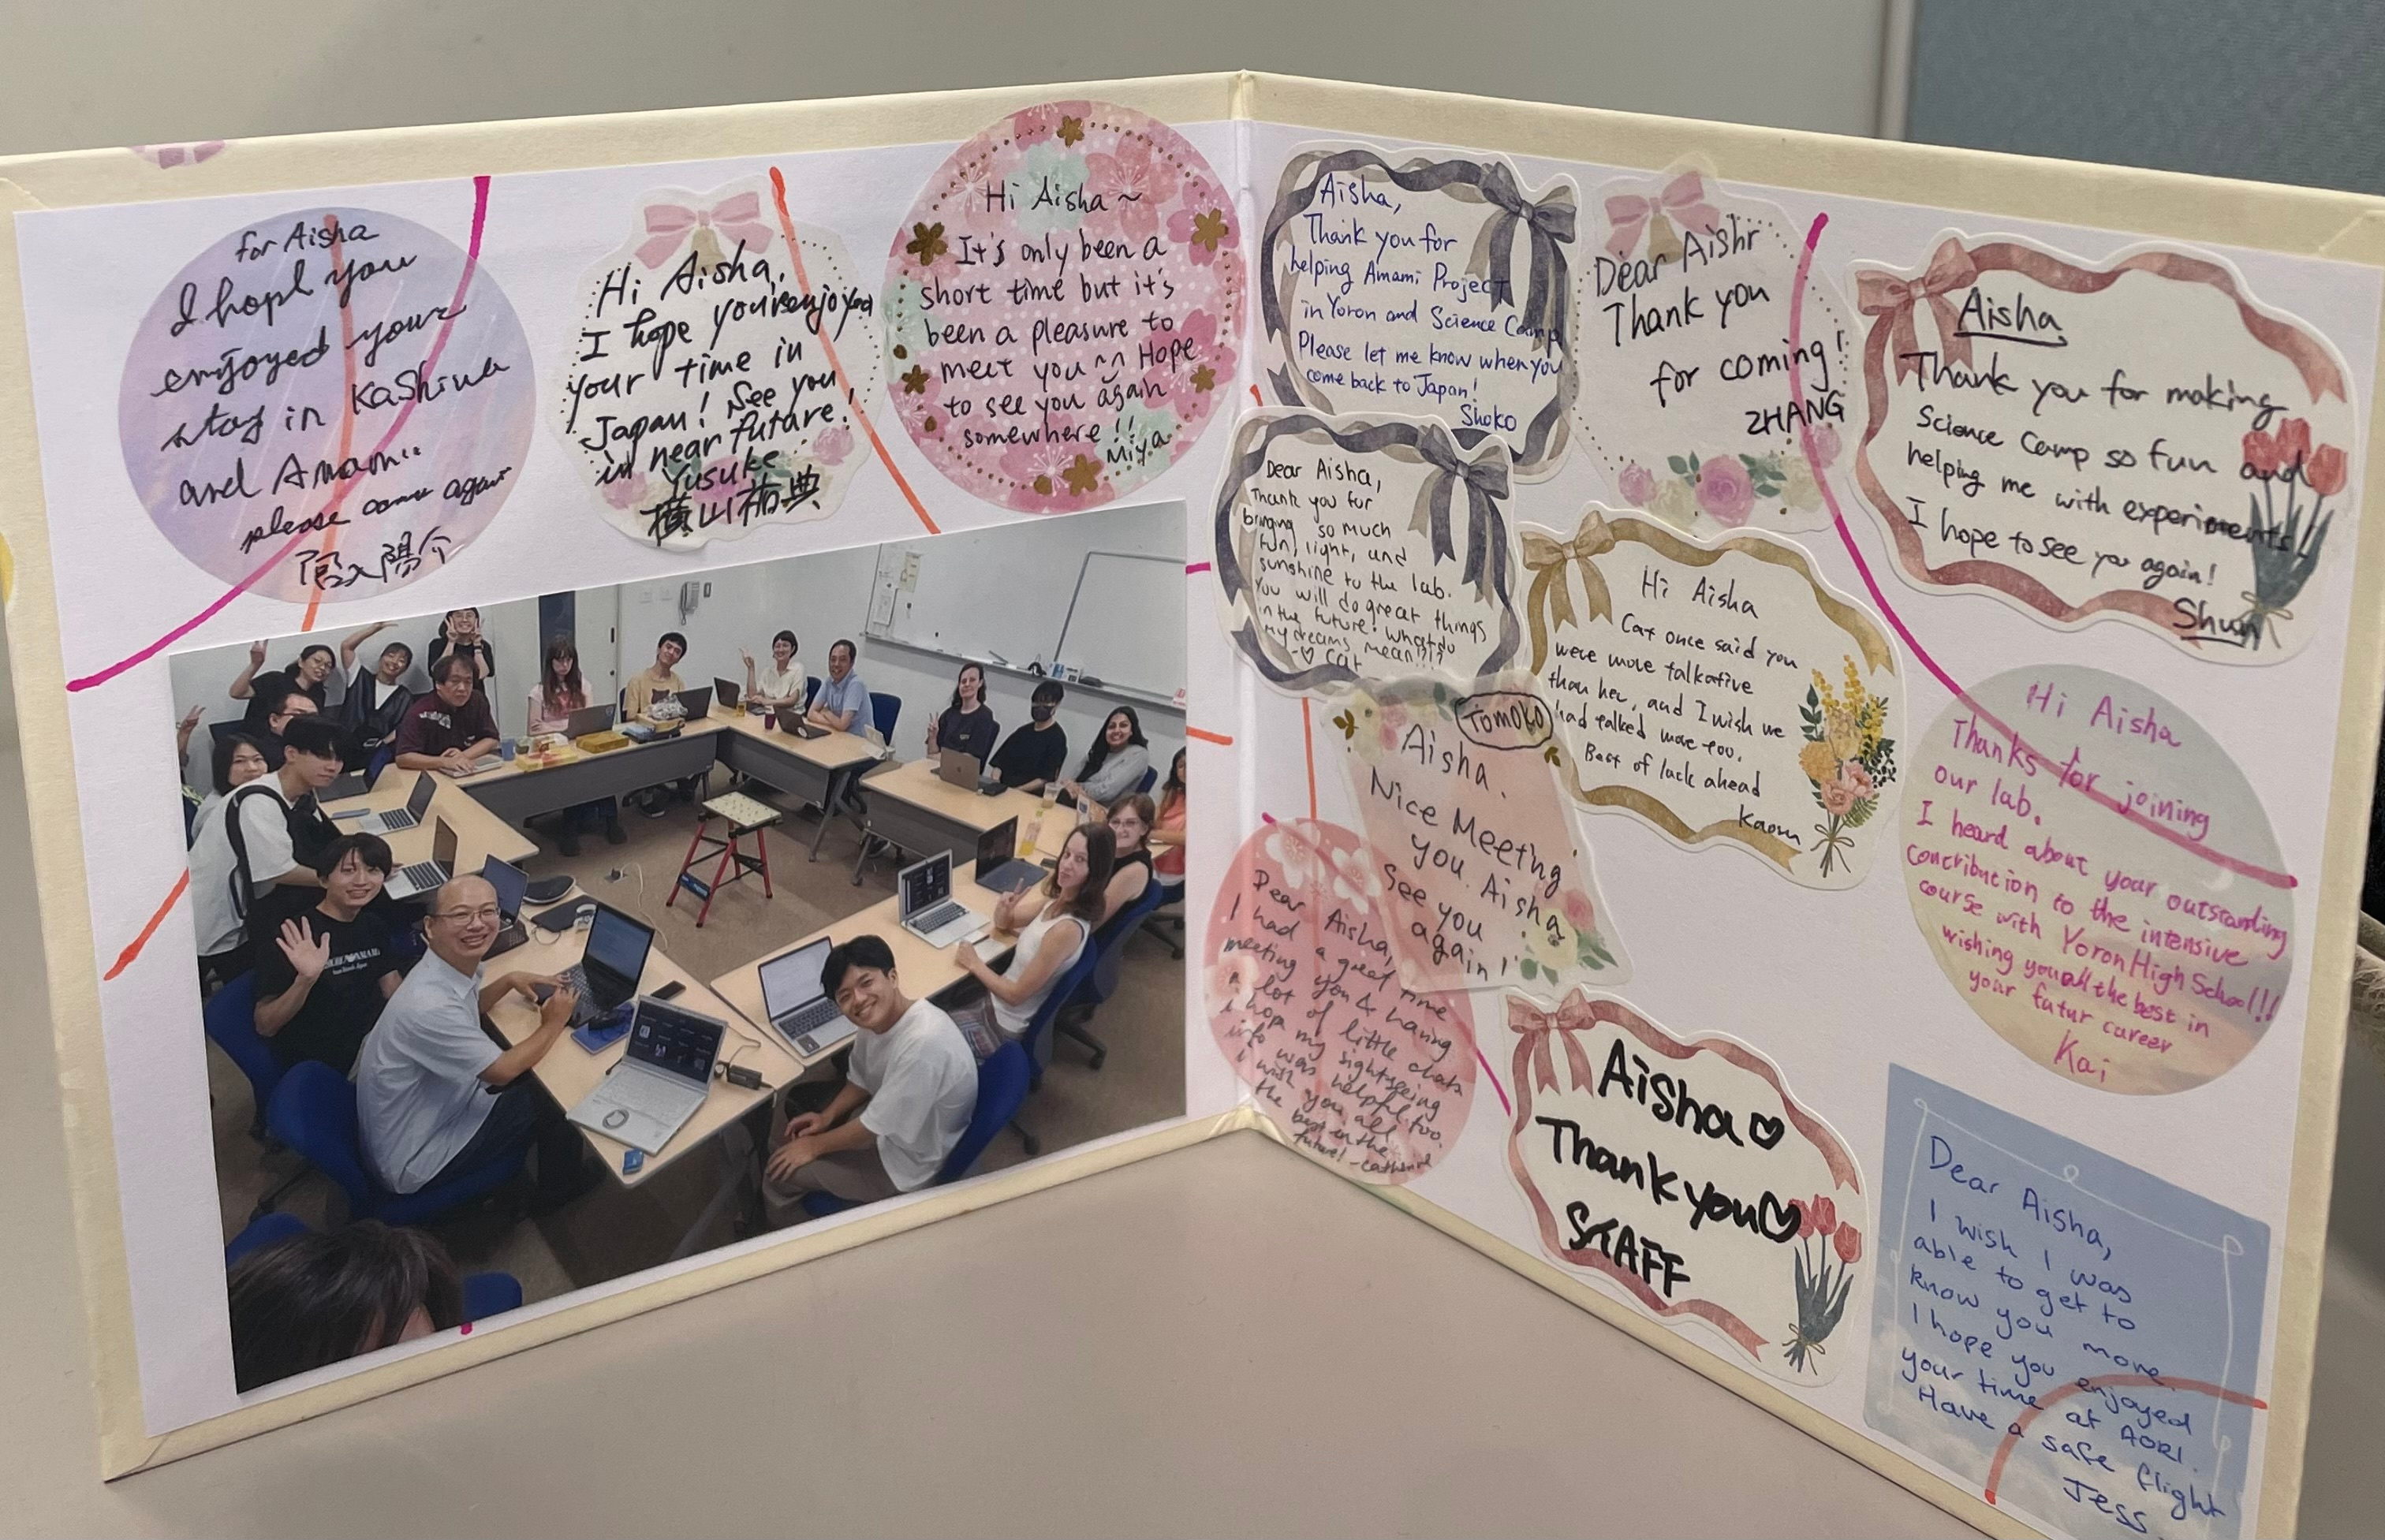 for Aisha
I hope you
enjoyed your
stay in Kashiwa
and Amami
please come again
陽介
Hi Aisha,
I hope you enjoyed
your time in
Japan! See you
in near future!
Yusuke
横山祐典
Hi Aisha~
It's only been a
short time but it's
been a pleasure to
meet you ^^ Hope
to see you again
somewhere!!
Miya
Aisha,
Thank you for
helping Amami Project
in Yoron and Science Camp
Please let me know when you
come back to Japan!
Shoko
Dear Aishr
Thank you
for coming!
ZHANG
Aisha
Thank you for making
Science Camp so fun and
helping me with experiments!
I hope to see you again!
Shun
Dear Aisha,
Thank you for
bringing so much
fun, light, and
sunshine to the lab.
You will do great things
in the future! What do
my dreams mean!!??
-♡ Cat
Hi Aisha
Cat once said you
were more talkative
than her, and I wish we
had talked more too.
Best of luck ahead
Kaoru
TOMOKO
Aisha.
Nice Meeting
you. Aisha
See you
again!
Hi Aisha
Thanks for joining
our lab.
I heard about your outstanding
contribution to the intensive
course with Yoron High School!!
wishing you all the best in
your futur career
Kai
Dear Aisha,
I had a great time
meeting you & having
a lot of little chats
I hop my sightseeing
info was helpful too.
I wish you all
the best in the
future! -Catherine
Aisha♡
Thank you♡
STAFF
Dear Aisha,
I wish I was
able to get to
know you more.
I hope you enjoyed
your time at AORI.
Have a safe flight
Jess